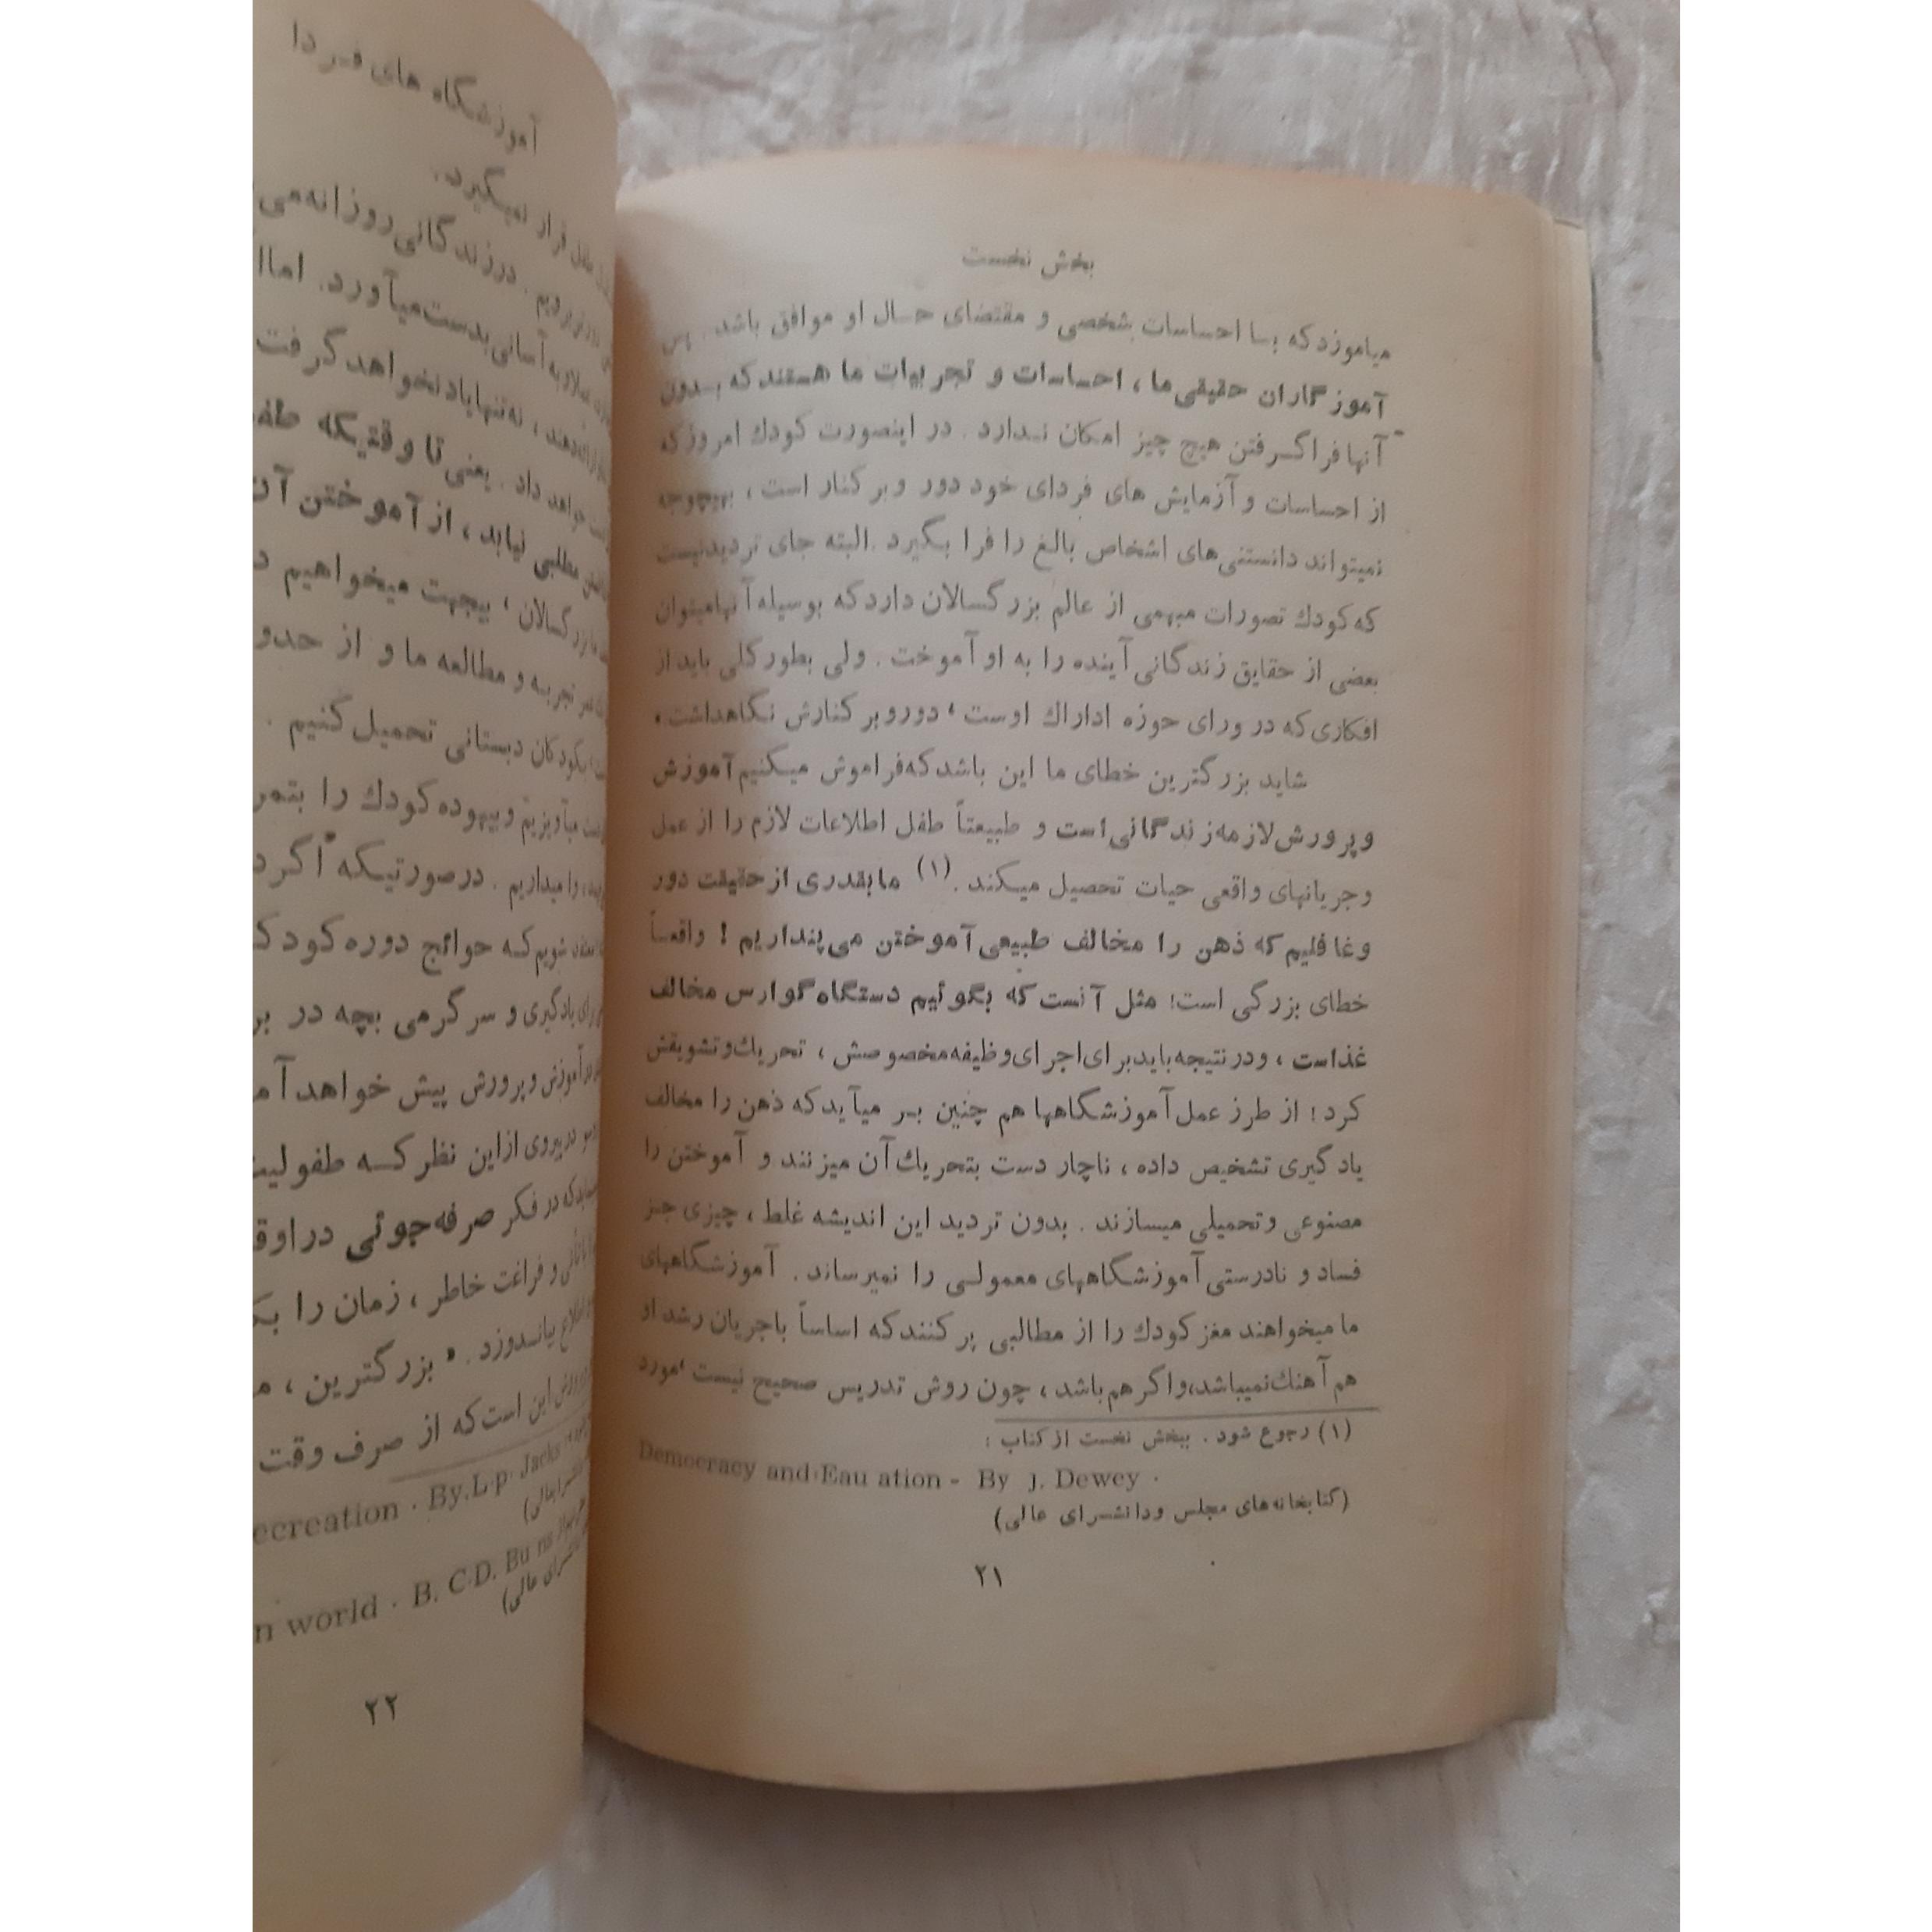 بخش نخست
میاموزد که بـا احساسات شخصی و مقتضای حـال او موافق باشد. پس
آموزگاران حقیقی‌ما، احساسات و تجربیات ما هستند که بـدون
آنها فراگـرفتن هیچ چیز امکان نـدارد. در اینصورت کودك امروز که
از احساسات و آزمایش های فردای خود دور و بر کنار است، بهیچوجه
نمیتواند دانستنی‌های اشخاص بالغ را فرا بگیرد. البته جای تردیدنیست
که کودك تصورات مبهمی از عالم بزرگسالان دارد که بوسیله آنهامیتوان
بعضی از حقایق زندگانی آینده را به او آموخت. ولی بطور کلی باید از
افکاری که در ورای حوزه اداراك اوست، دور و بر کنارش نگاهداشت.
شاید بزرگترین خطای ما این باشد که فراموش میکنیم آموزش
و پرورش لازمه زندگانی است و طبیعتاً طفل اطلاعات لازم را از عمل
و جریانهای واقعی حیات تحصیل میکند. (۱) ما بقدری از حقیقت دور
و غافلیم که ذهن را مخالف طبیعی آموختن می‌پنداریم! واقعـاً
خطای بزرگی است! مثل آنست که بگوئیم دستگاه گوارس مخالف
غذاست، و در نتیجه باید برای اجرای وظیفه مخصوصش، تحریك و تشویقش
کرد! از طرز عمل آموزشگاهها هم چنین بـر میآید که ذهن را مخالف
یادگیری تشخیص داده، ناچار دست بتحریك آن میزنند و آموختن را
مصنوعی و تحمیلی میسازند. بدون تردید این اندیشه غلط، چیزی جـز
فساد و نادرستی آموزشگاههای معمولـی را نمیرساند. آموزشگاههای
ما میخواهند مغز کودك را از مطالبی پر کنند که اساساً با جریان رشد او
هم آهنك نمیباشد، و اگر هم باشد، چون روش تدریس صحیح نیست، مورد
(۱) رجوع شود. ببخش نخست از کتاب:
Democracy and Eau ation - By J. Dewey.
(کتابخانه‌های مجلس و دانشسرای عالی)
۲۱
آموزشگاه های فـردا
قرار نمیگیرد.
در زندگانی روزانه می
بآسانی بدست میآورد. اما
، نه تنها یاد نخواهد گرفت
خواهد داد. یعنی تا وقتیکه طفـ
مطلبی نیابد، از آموختن آن
بزرگسالان، بیجهت میخواهیم د
تجربه و مطالعه ما و از حدو
بکودکان دبستانی تحمیل کنیم.
میآویزیم و بیهوده کودك را بتمر
را میداریم. در صورتیکه اگر د
شویم کـه حوائج دوره کودک
یادگیری و سرگرمی بچه در بر
آموزش و پرورش پیش خواهد آمـ
در پیروی از این نظر کـه طفولیت
که در فکر صرفه‌جوئی در اوقـ
و فراغت خاطر، زمان را بکـ
بیانـدوزد. «بزرگترین، مـ
این است که از صرف وقت
ecreation. By. L. p. Jacks
n world. B. C.D. Bu ns
۲۲